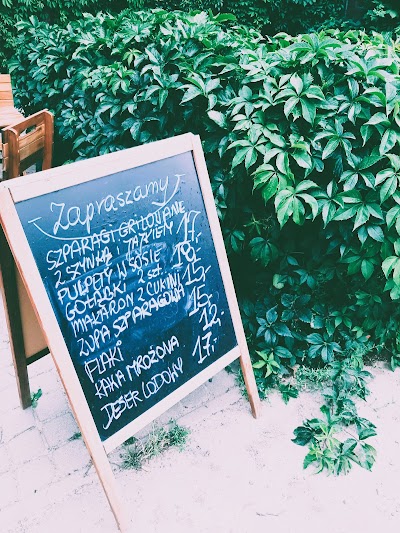 Zapraszamy
SZPARAGI GRILOWANE
Z SZYNKĄ I 17,-
PULPETY W SOSIE
GOŁĄBKI 2 szt.
MAKARON Z CUKINI
ZUPA SZPARAGOWA
FLAKI
KAWA MROŻONA 12,-
DESER LODOWY 17,-